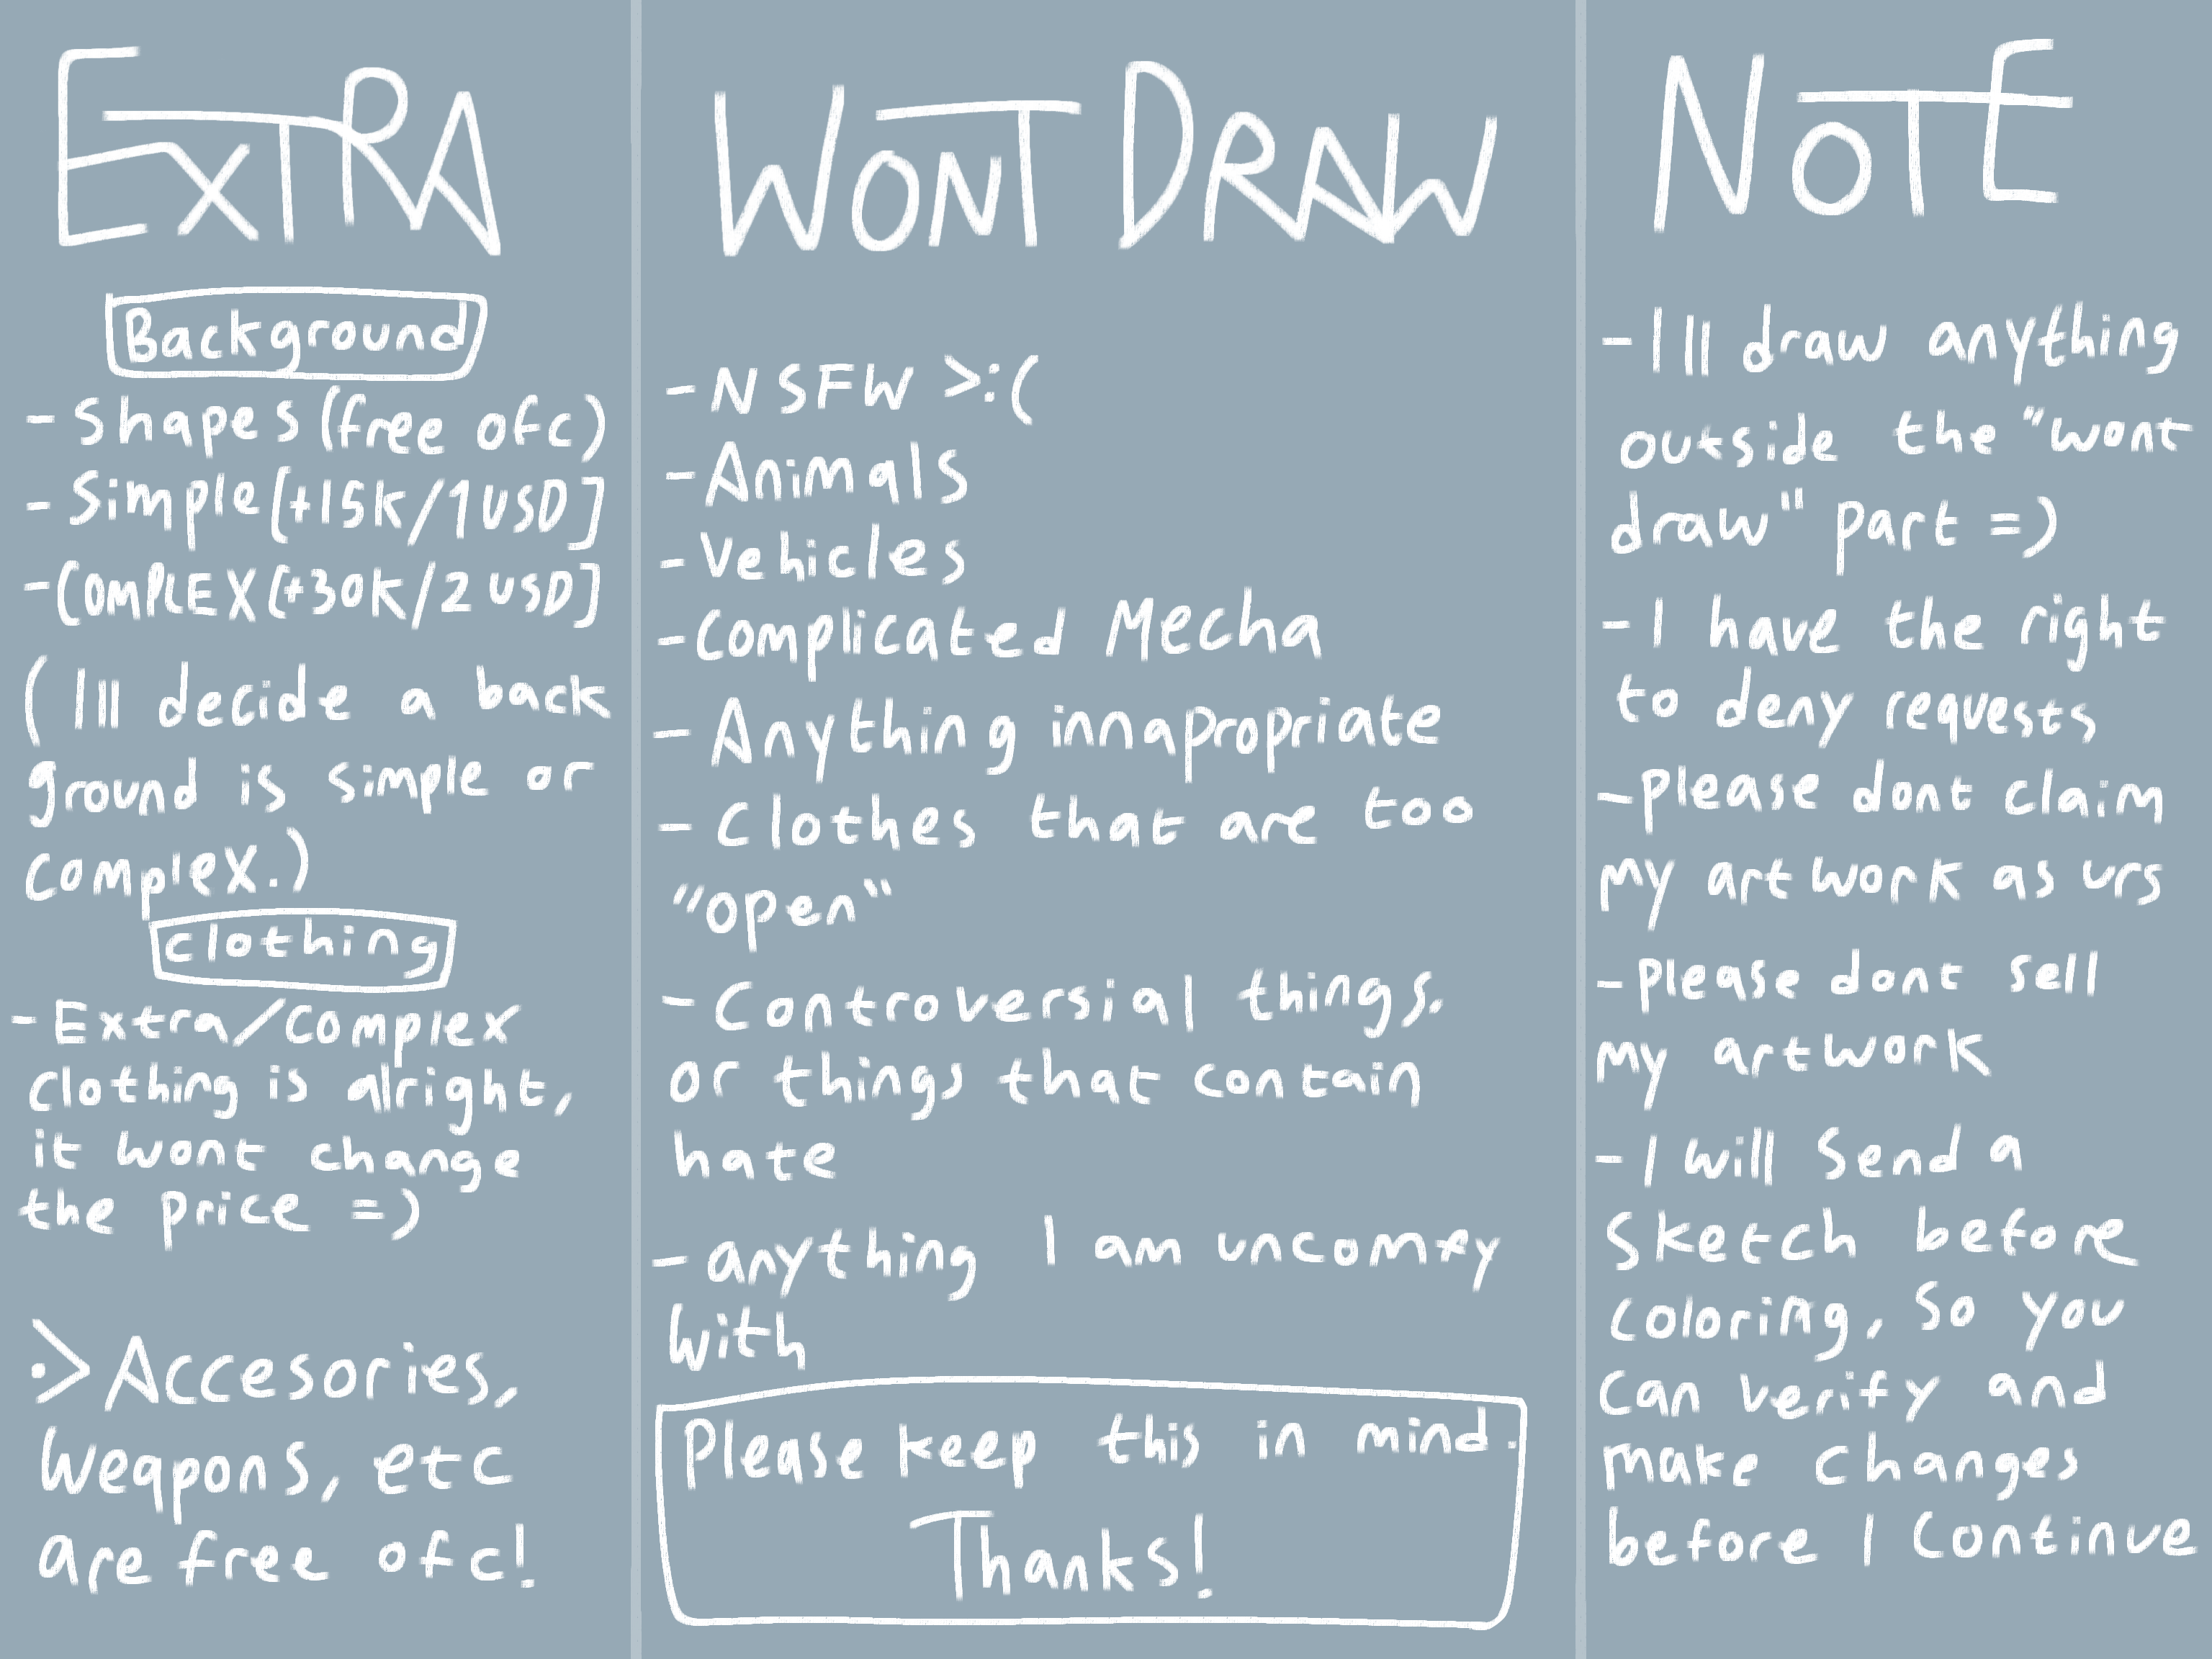 EXTRA
Background
- Shapes (free ofc)
- Simple [+15k/1USD]
- COMPLEX [+30K/2USD]
( I'll decide a back
ground is simple or
complex.)
clothing
- Extra/complex
clothing is alright,
it wont change
the price =)
:> Accesories,
weapons, etc
are free ofc!
WONT DRAW
- NSFW >:(
- Animals
- Vehicles
- Complicated Mecha
- Anything innapropriate
- Clothes that are too
"open"
- Controversial things.
or things that contain
hate
- anything I am uncomfy
with
Please keep this in mind.
Thanks!
NOTE
- I'll draw anything
outside the "wont
draw" part =)
- I have the right
to deny requests
- Please dont claim
my artwork as urs
- Please dont sell
my artwork
- I will send a
sketch before
coloring, so you
can verify and
make changes
before I continue